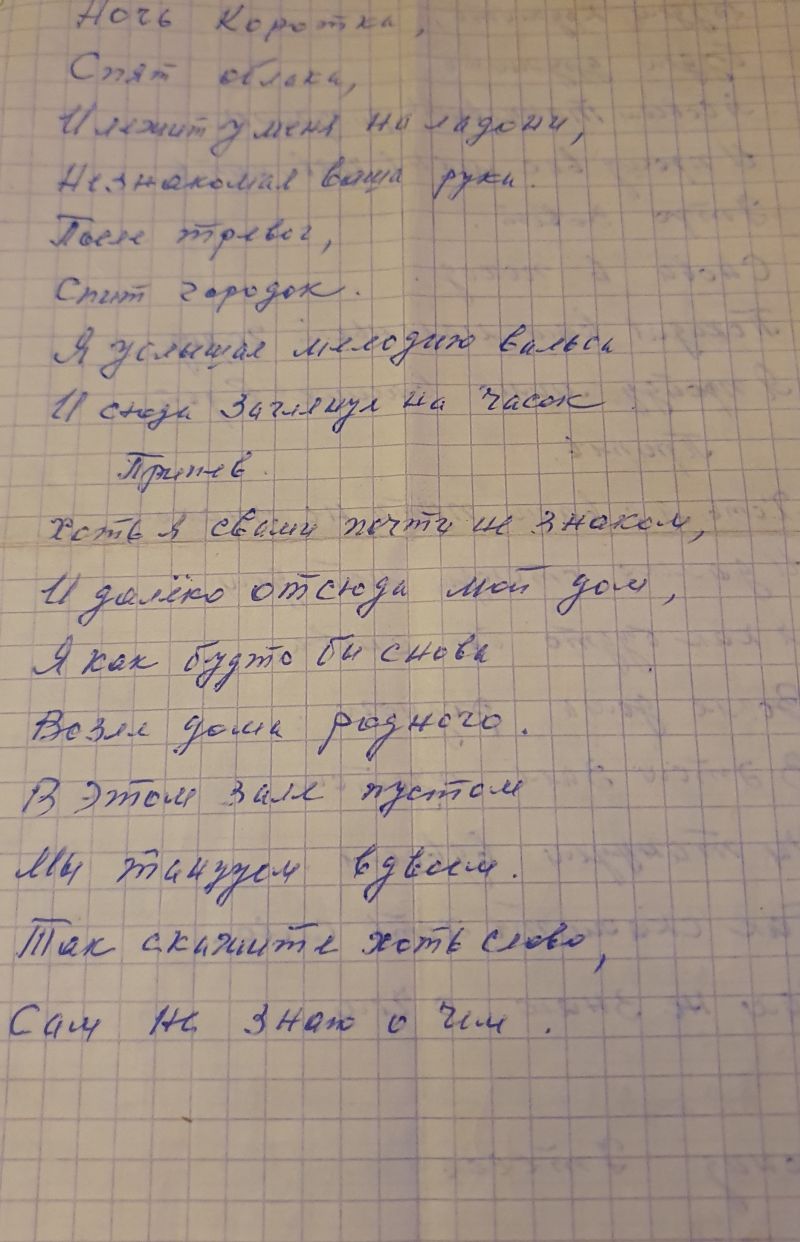 Ночь Коротка,
Спят облака,
И лежит у меня на ладони,
Незнакомая ваша рука.
После тревог,
Спит городок.
Я услышал мелодию вальса
И сюда заглянул на часок.
Припев.
Хоть я с вами почти не знаком,
И далёко отсюда мой дом,
Я как будто бы снова
Возле дома родного.
В этом зале пустом
Мы танцуем вдвоем.
Так скажите хоть слово,
Сам не знаю о чем.